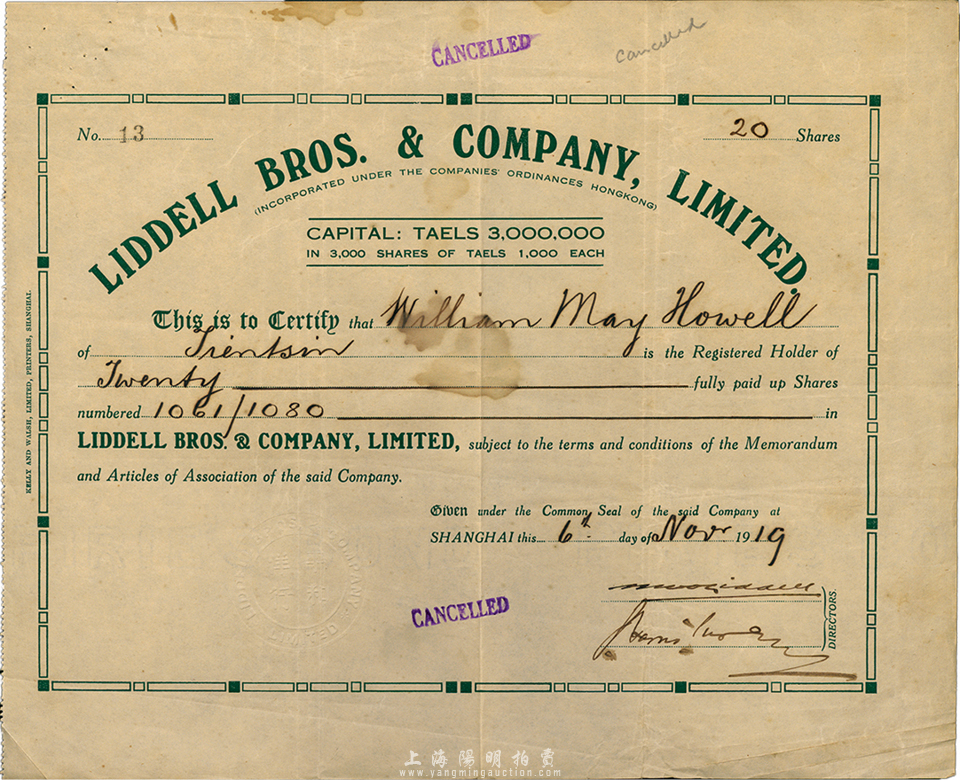 CANCELLED
Cancelled
No. 13
20 Shares
LIDDELL BROS. & COMPANY, LIMITED.
(INCORPORATED UNDER THE COMPANIES' ORDINANCES HONGKONG)
CAPITAL: TAELS 3,000,000
IN 3,000 SHARES OF TAELS 1,000 EACH
This is to Certify that William May Howell
of Tientsin is the Registered Holder of
Twenty fully paid up Shares
numbered 1061/1080 in
LIDDELL BROS. & COMPANY, LIMITED, subject to the terms and conditions of the Memorandum
and Articles of Association of the said Company.
Given under the Common Seal of the said Company at
SHANGHAI this 6th day of Novr 1919
CANCELLED
DIRECTORS.
KELLY AND WALSH, LIMITED, PRINTERS, SHANGHAI.
LIMITED
上海陽明拍賣
www.yangmingauction.com